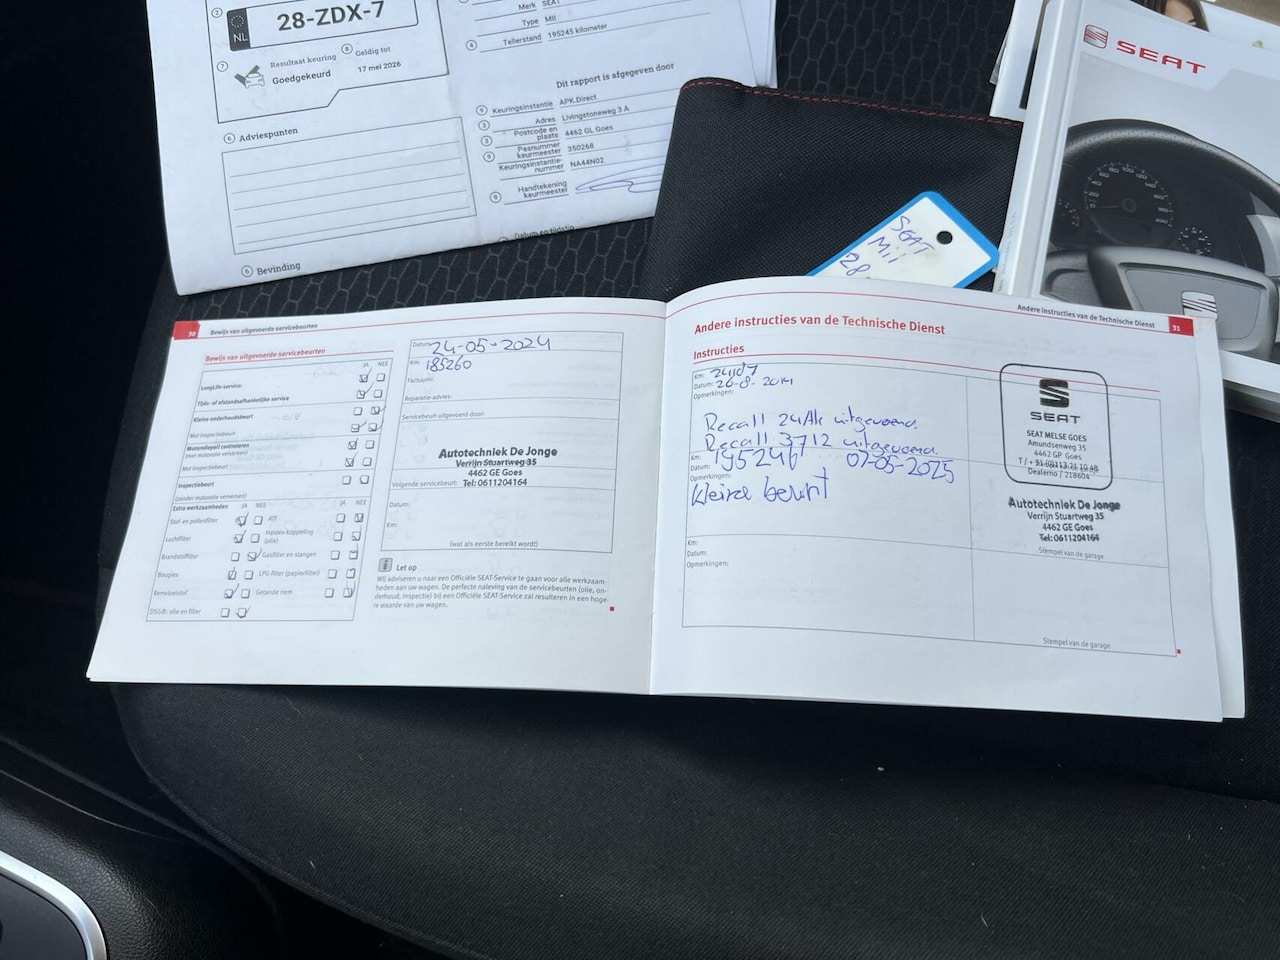 28-ZDX-7
NL
Resultaat keuring
Goedgekeurd
Geldig tot
17 mei 2026
Adviespunten
Bevinding
Merk SEAT
Type MII
Tellerstand 195245 kilometer
Dit rapport is afgegeven door
Keuringsinstantie APK Direct
Adres Livingstoneweg 3 A
Postcode en plaats 4462 GL Goes
Pasnummer keurmeester 350268
Keuringsinstantie-nummer NA44N02
Handtekening keurmeester
Datum en tijdstip
SEAT
SEAT
Mii
28
30 Bewijs van uitgevoerde servicebeurten
Bewijs van uitgevoerde servicebeurten
JA NEE
LongLife-service:
Tijds- of afstandsafhankelijke service
Kleine onderhoudsbeurt
Met inspectiebeurt
Motoroliepeil controleren
(met motorolie verversen)
Met inspectiebeurt
Inspectiebeurt
(zonder motorolie verversen)
Extra werkzaamheden JA NEE JA NEE
Stof- en pollenfilter ATF
Luchtfilter Haldex-koppeling (olie)
Brandstoffilter Gasfilter en slangen
Bougies LPG-filter (papierfilter)
Remvloeistof Getande riem
DSG®: olie en filter
Datum: 24-05-2024
Km: 185260
Factuurnr.
Reparatie-advies:
Servicebeurt uitgevoerd door:
Autotechniek De Jonge
Verrijn Stuartweg 35
4462 GE Goes
Tel: 0611204164
Volgende servicebeurt:
Datum:
Km:
(wat als eerste bereikt wordt)
Let op
Wij adviseren u naar een Officiële SEAT-Service te gaan voor alle werkzaam-
heden aan uw wagen. De perfecte naleving van de servicebeurten (olie, on-
derhoud, inspectie) bij een Officiële SEAT-Service zal resulteren in een hoge-
re waarde van uw wagen.
Andere instructies van de Technische Dienst 31
Andere instructies van de Technische Dienst
Instructies
Km:
Datum: 26-8-2014
Opmerkingen:
Recall 24A1 uitgevoerd.
Recall 3712 uitgevoerd.
SEAT
SEAT MELSE GOES
Amundsenweg 35
4462 GP Goes
T / + 31 (0)113 21 10 48
Dealerno / 218604
Km: 195246
Datum: 07-05-2025
Opmerkingen:
kleine beurt
Autotechniek De Jonge
Verrijn Stuartweg 35
4462 GE Goes
Tel: 0611204164
Stempel van de garage
Km:
Datum:
Opmerkingen:
Stempel van de garage